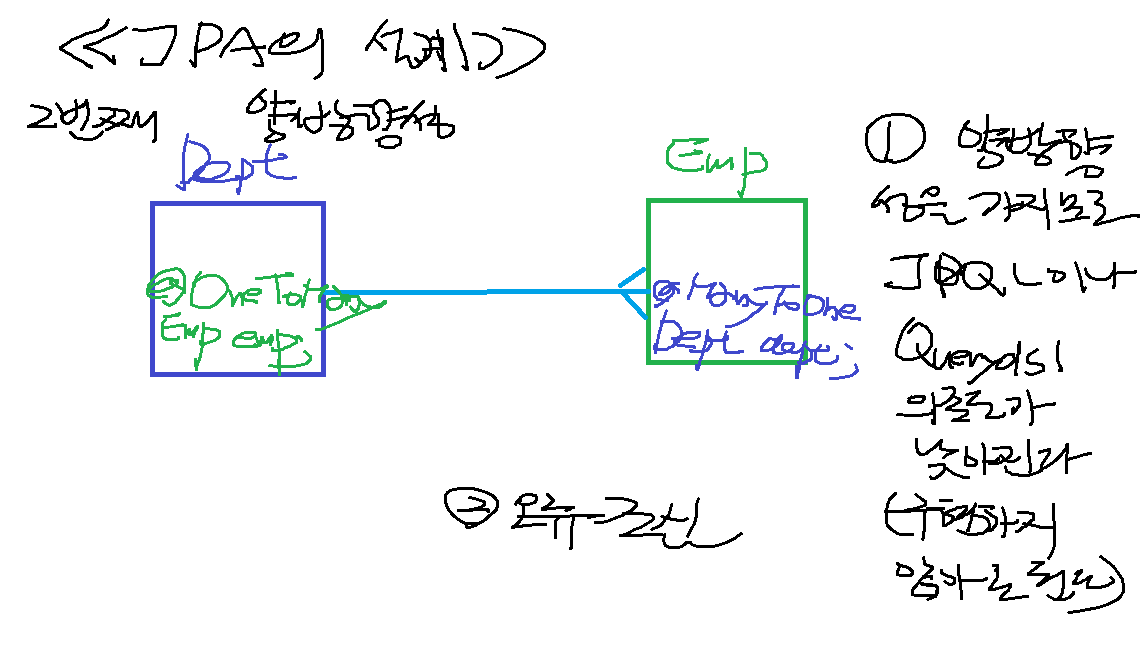 <<JPA의 설계>>
2번째 양방향성
Dept
Emp
@OneToMany
Emp emp;
@ManyToOne
Dept dept;
① 양방향
성을 가지므로
JPQL이나
Querydsl
의존도가
낮아진다
않아도 된다)
② 오류